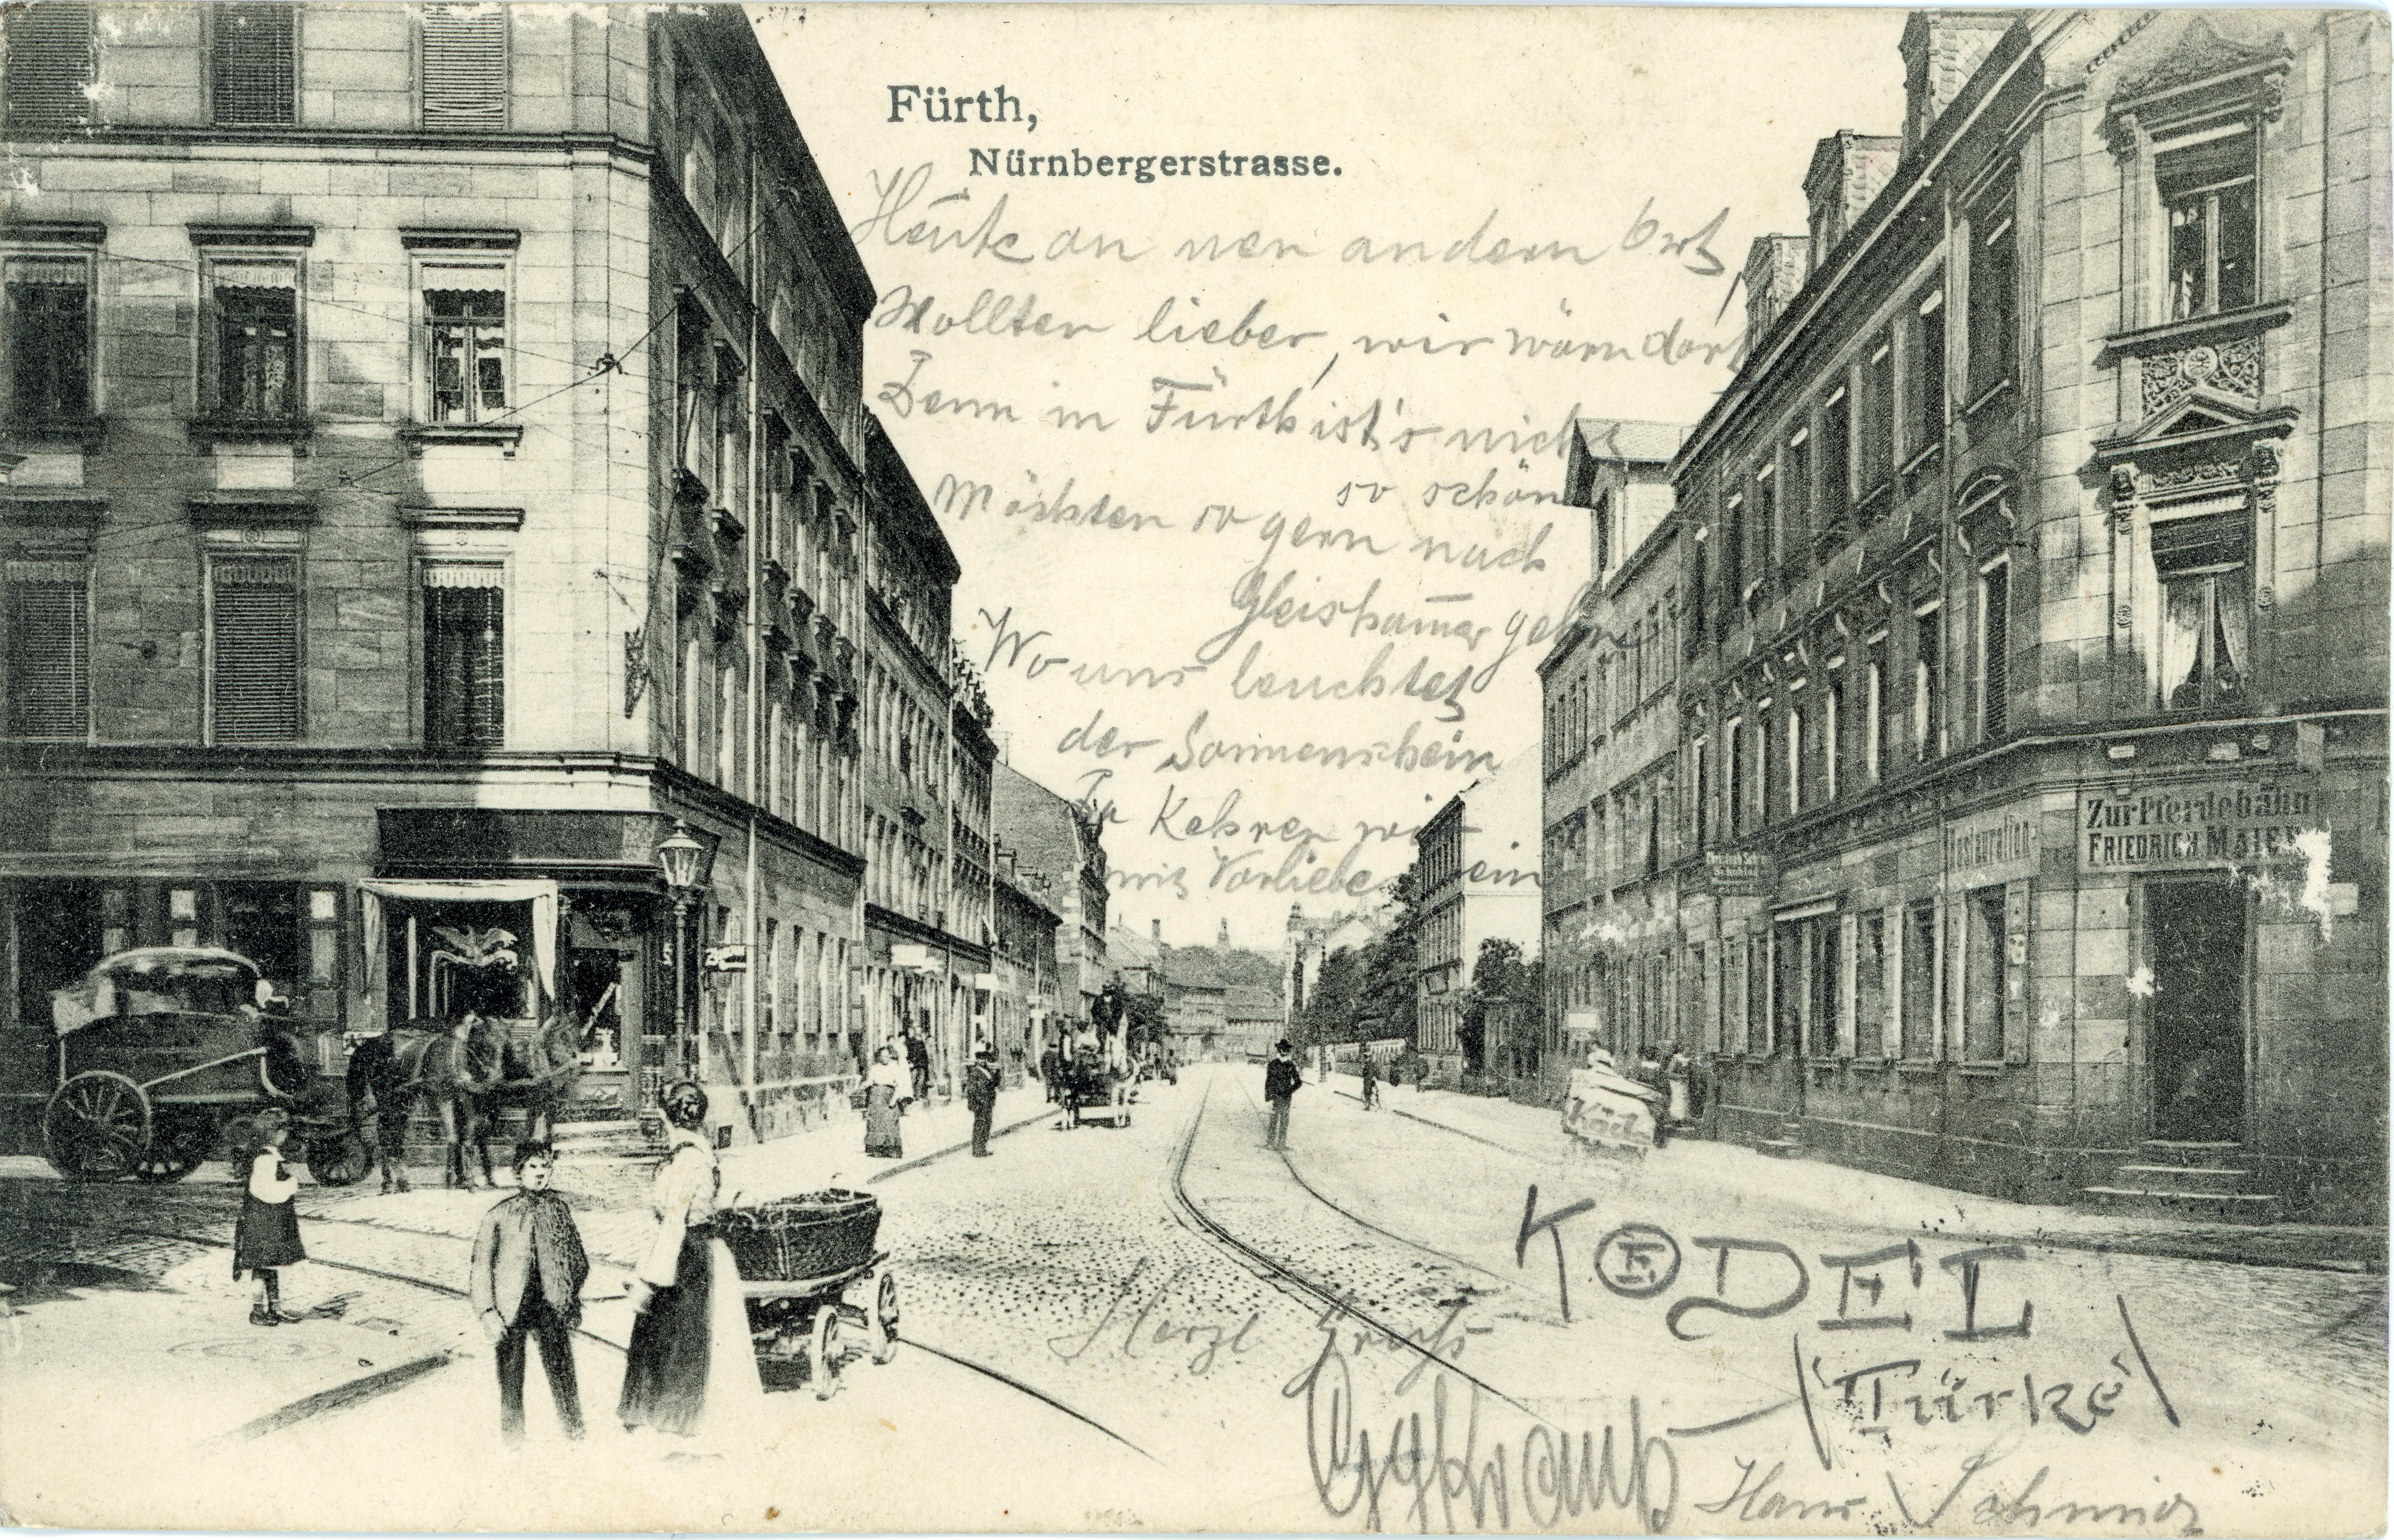 Fürth,
Nürnbergerstrasse.
Heute an nen andern Ort,
Wollten lieber, wir wärn dort
Denn in Fürth ist's nicht
so schön
Möchten so gern nach
Gleishamer gehn
Wo uns leuchtet
der Sonnenschein
Da Kehren wir
mit Vorliebe ein
Zur Pferdebahn
FRIEDRICH MAIER
Restauration
Herzl Gruß
KÖDEL
(Türke)
Hans Schmidt